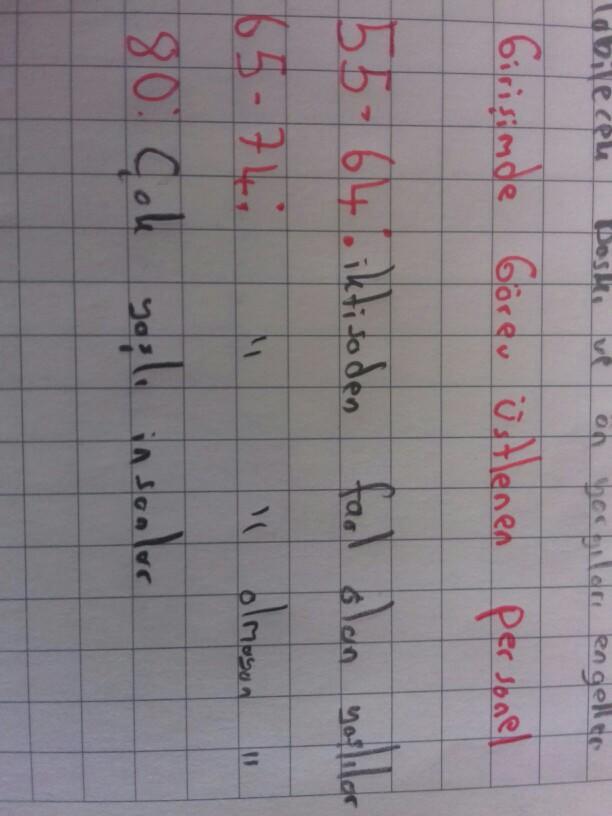 baskı ve ön yargıları engeller
Girişimde Görev üstlenen personel
55-64: iktisaden faal olan yaşlılar
65-74: " " olmayan "
80: Çok yaşlı insanlar